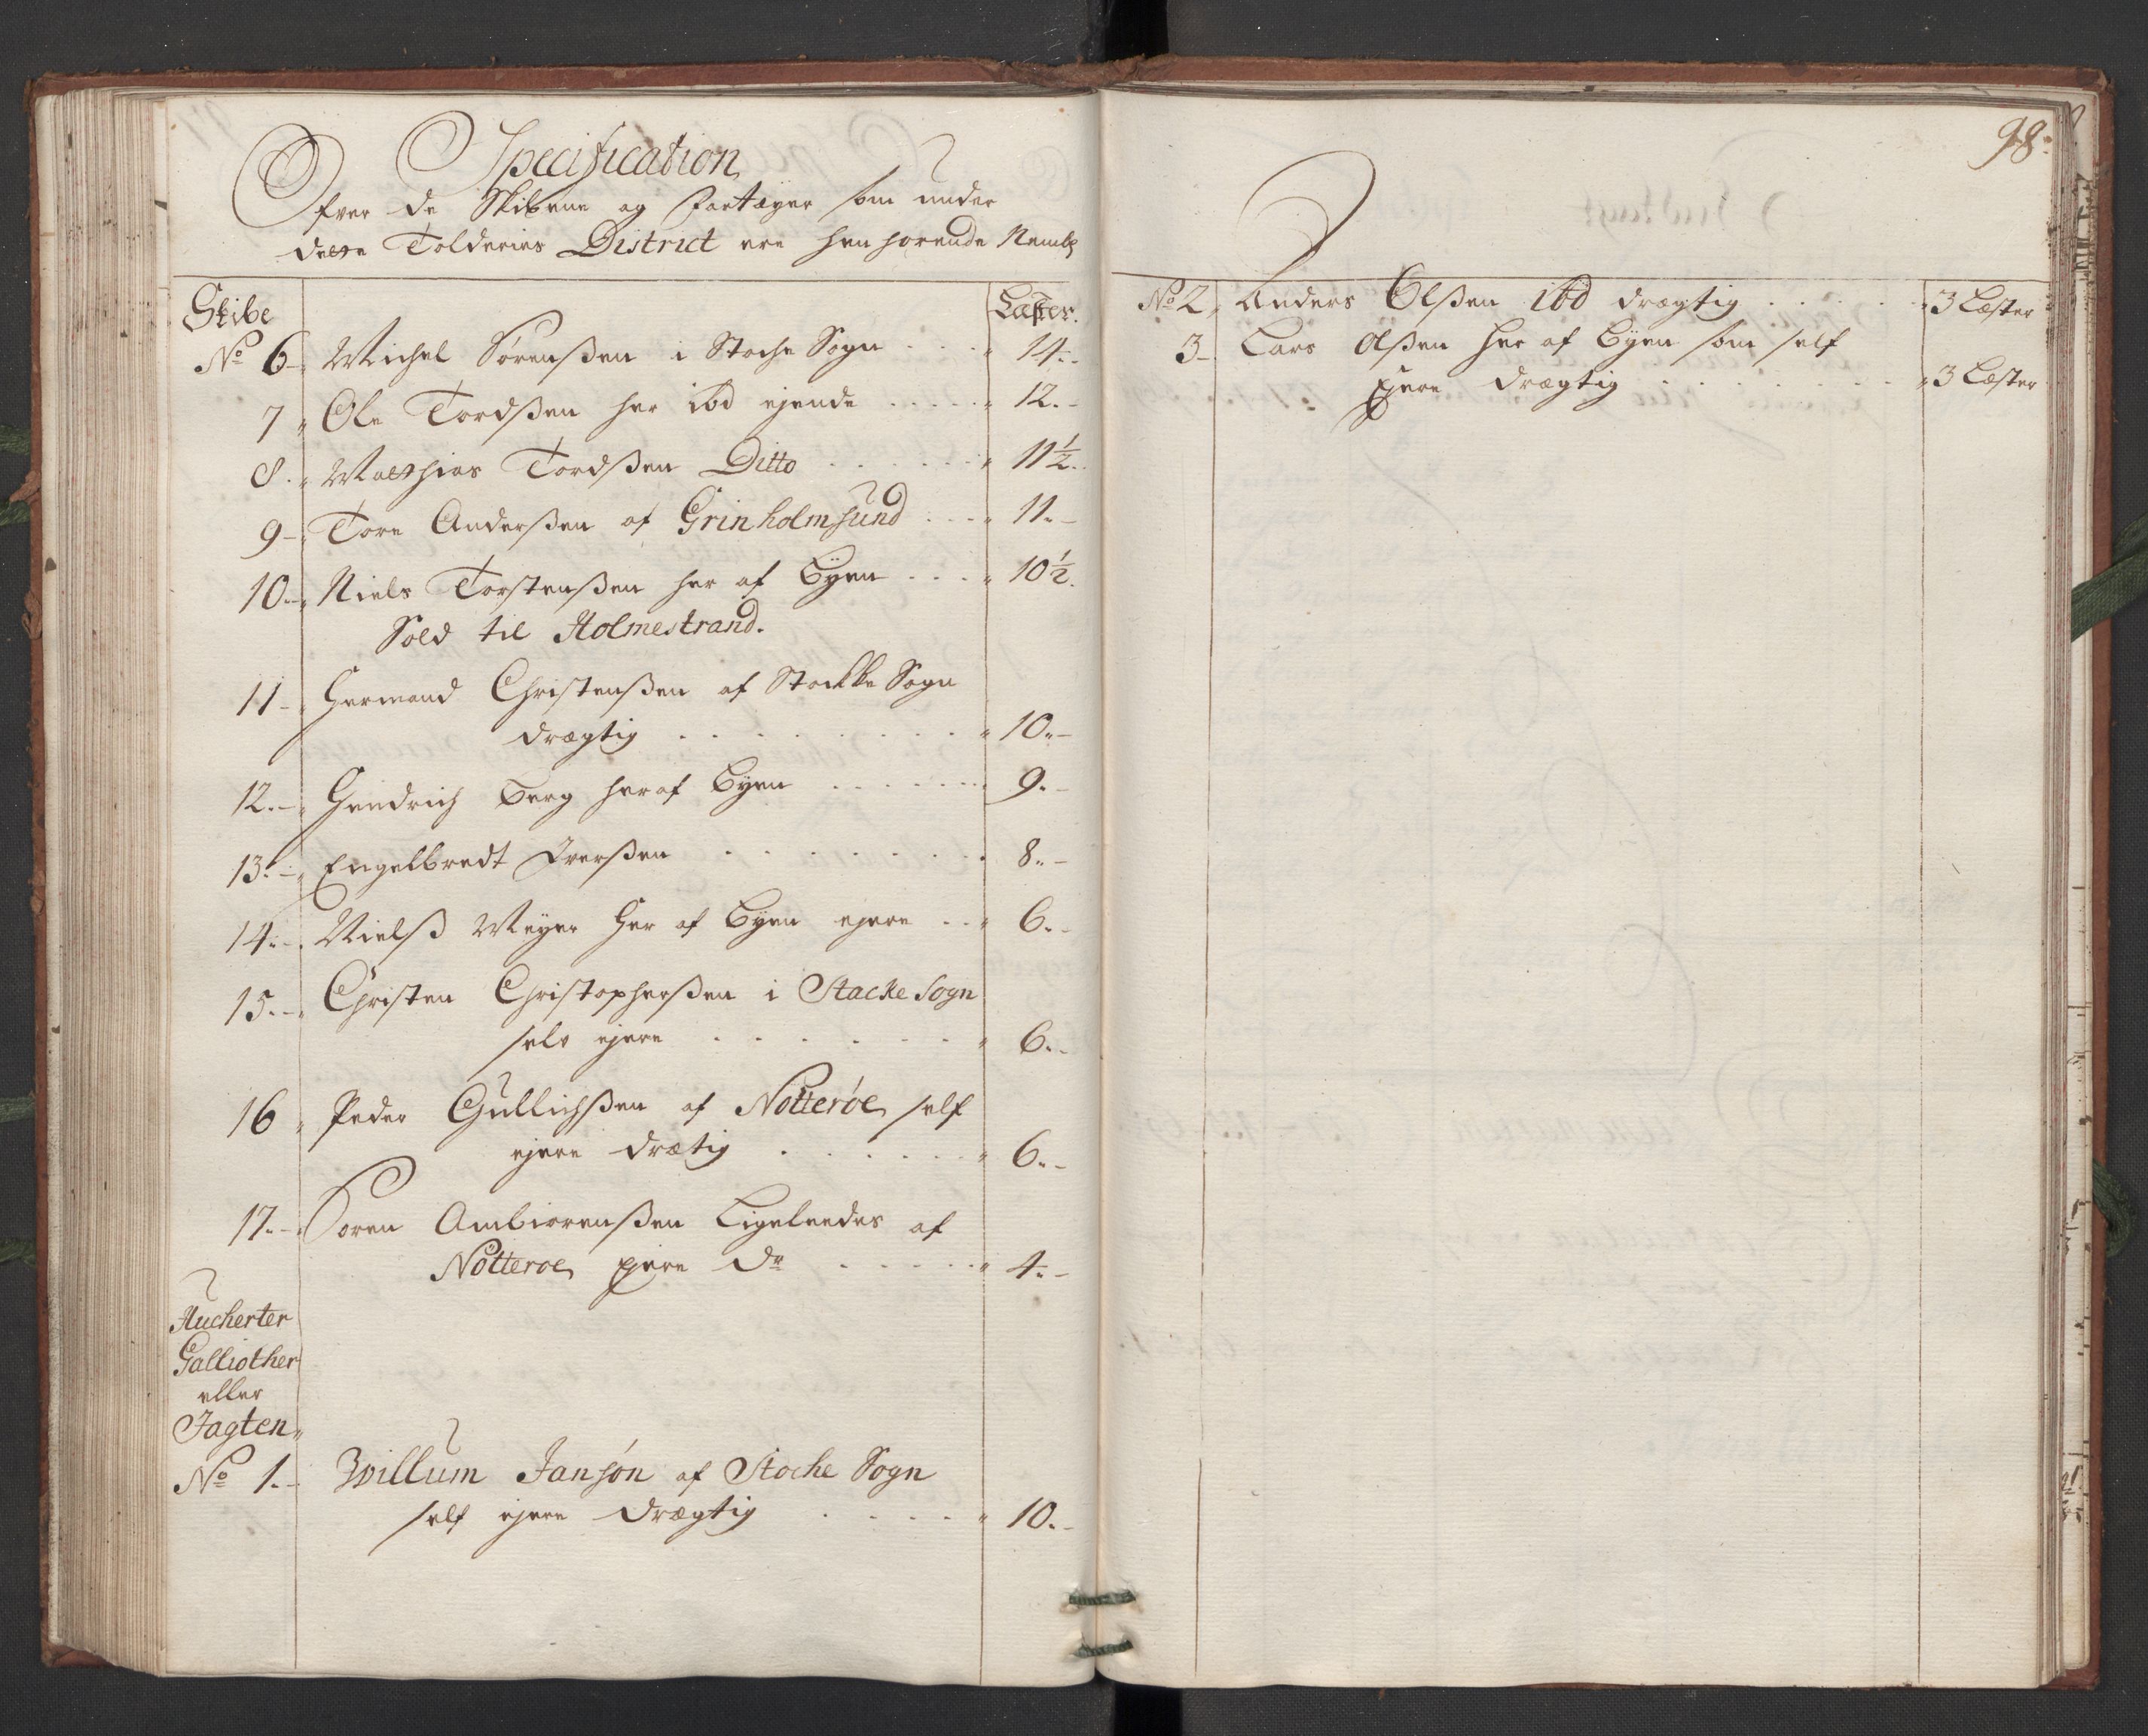 Specification
Ofver de Skibene og Fartøyer som under
dette Tolderies District ere henhørende Nembl
Skibe
Læster.
No 6 Michel Sørenßen i Stoche Sogn 14.
7 Ole Tordßen her ibd ejende 12.
8. Matthias Tordßen Ditto 11½.
9 Tore Anderßen af Grinholmsund 11.
10. Niels Torstenßen her af Byen 10½.
Sold til Holmestrand.
11 Hermand Christenßen af Stockke Sogn
drægtig 10.
12. Hendrich Berg her af Byen 9.
13. Engelbredt Iverßen 8.
14. Nielß Meyer her af Byen ejere 6.
15. Christen Christopherßen i Stacke Sogn
selv ejere 6.
16 Peder Gullichßen af Notterøe self
ejere drætig 6.
17. Søren Ambiørenßen Ligeleedes af
Nøtteroe ejere Dr 4.
Huckerter
Galliother
eller
Jagten
No 1. Willum Jansøn af Stoche Sogn
self ejere drægtig 10.
98.
No 2, Anders Olßen ibd drægtig 3 Læster
3 Lars Olßen her af Byen som self
ejere drægtig 3 Læster